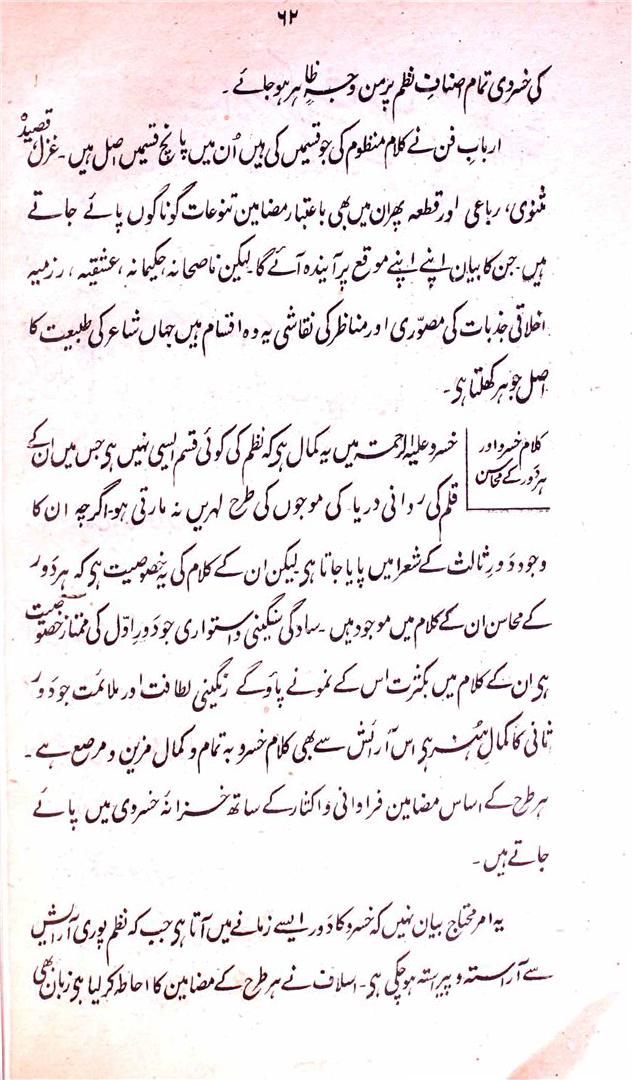 ۶۲
کی خسروی تمام اصنافِ نظم پر من وجہٍ ظاہر ہو جائے ۔
اربابِ فن نے کلام منظوم کی جو قسمیں کی ہیں اُن میں پانچ قسمیں اصل ہیں ۔ غزل، قصیدہ
مثنوی، رباعی اور قطعہ پھر ان میں بھی باعتبار مضامین تنوعات گوناگوں پائے جاتے
ہیں جن کا بیان اپنے اپنے موقع پر آیندہ آئے گا لیکن ناصحانہ، حکیمانہ، عشقیہ، رزمیہ
اخلاقی جذبات کی مصوّری اور مناظر کی نقاشی یہ وہ اقسام ہیں جہاں شاعر کی طبیعت کا
اصل جوہر کھلتا ہی ۔
کلام خسرو اور
ہر دَور کے محاسن
خسرو علیہ الرحمۃ میں یہ کمال ہی کہ نظم کی کوئی قسم ایسی نہیں ہی جس میں ان کے
قلم کی روانی دریا کی موجوں کی طرح لہریں نہ مارتی ہو۔ اگرچہ ان کا
وجود دَورِ ثالث کے شعرا میں پایا جاتا ہی لیکن ان کے کلام کی یہ خصوصیت ہی کہ ہر دَور
کے محاسن ان کے کلام میں موجود ہیں ۔ سادگی سنگینی و استواری جو دَورِ اوّل کی ممتاز خصوصیت
ہی ان کے کلام میں بکثرت اس کے نمونے پاؤگے رنگینی لطافت اور ملائمت جو دَور
ثانی کا کمالِ ہنر ہی اس آرایش سے بھی کلام خسرو بہ تمام و کمال مزین و مرصع ہے ۔
ہر طرح کے اساس مضامین فراوانی و اکثار کے ساتھ خزانۂ خسروی میں پائے
جاتے ہیں ۔
یہ امر محتاج بیان نہیں کہ خسرو کا دَور ایسے زمانے میں آتا ہی جب کہ نظم پوری آرایش
سے آراستہ و پیراستہ ہو چکی ہی ۔ اسلاف نے ہر طرح کے مضامین کا احاطہ کر لیا ہی زبان بھی